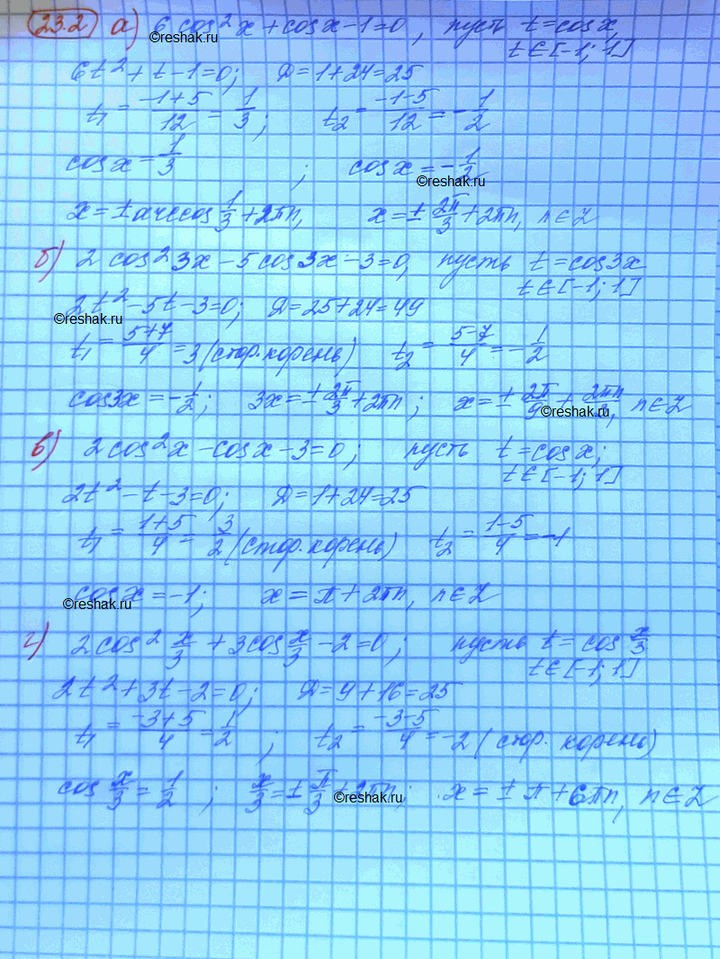 23.2 а) 6 cos²x + cos x - 1 = 0, пусть t = cos x,
©reshak.ru
t ∈ [-1; 1]
6t² + t - 1 = 0; D = 1 + 24 = 25
t₁ = (-1+5)/12 = 1/3; t₂ = (-1-5)/12 = -1/2
cos x = 1/3; cos x = -1/2
©reshak.ru
x = ± arccos 1/3 + 2πn, x = ± 2π/3 + 2πn, n ∈ Z
б) 2 cos²3x - 5 cos 3x - 3 = 0, пусть t = cos 3x
t ∈ [-1; 1]
2t² - 5t - 3 = 0; D = 25 + 24 = 49
©reshak.ru
t₁ = (5+7)/4 = 3 (стор. корень) t₂ = (5-7)/4 = -1/2
cos 3x = -1/2; 3x = ± 2π/3 + 2πn; x = ± 2π/9 + 2πn/, n ∈ Z
©reshak.ru
в) 2 cos²x - cos x - 3 = 0; пусть t = cos x;
t ∈ [-1; 1]
2t² - t - 3 = 0; D = 1 + 24 = 25
t₁ = (1+5)/4 = 3/2 (стор. корень) t₂ = (1-5)/4 = -1
cos x = -1; x = π + 2πn, n ∈ Z
©reshak.ru
г) 2 cos² x/3 + 3 cos x/3 - 2 = 0; пусть t = cos x/3
t ∈ [-1; 1]
2t² + 3t - 2 = 0; D = 9 + 16 = 25
t₁ = (-3+5)/4 = 1/2; t₂ = (-3-5)/4 = -2 (стор. корень)
cos x/3 = 1/2; x/3 = ± π/3 + 2πn; x = ± π + 6πn, n ∈ Z
©reshak.ru